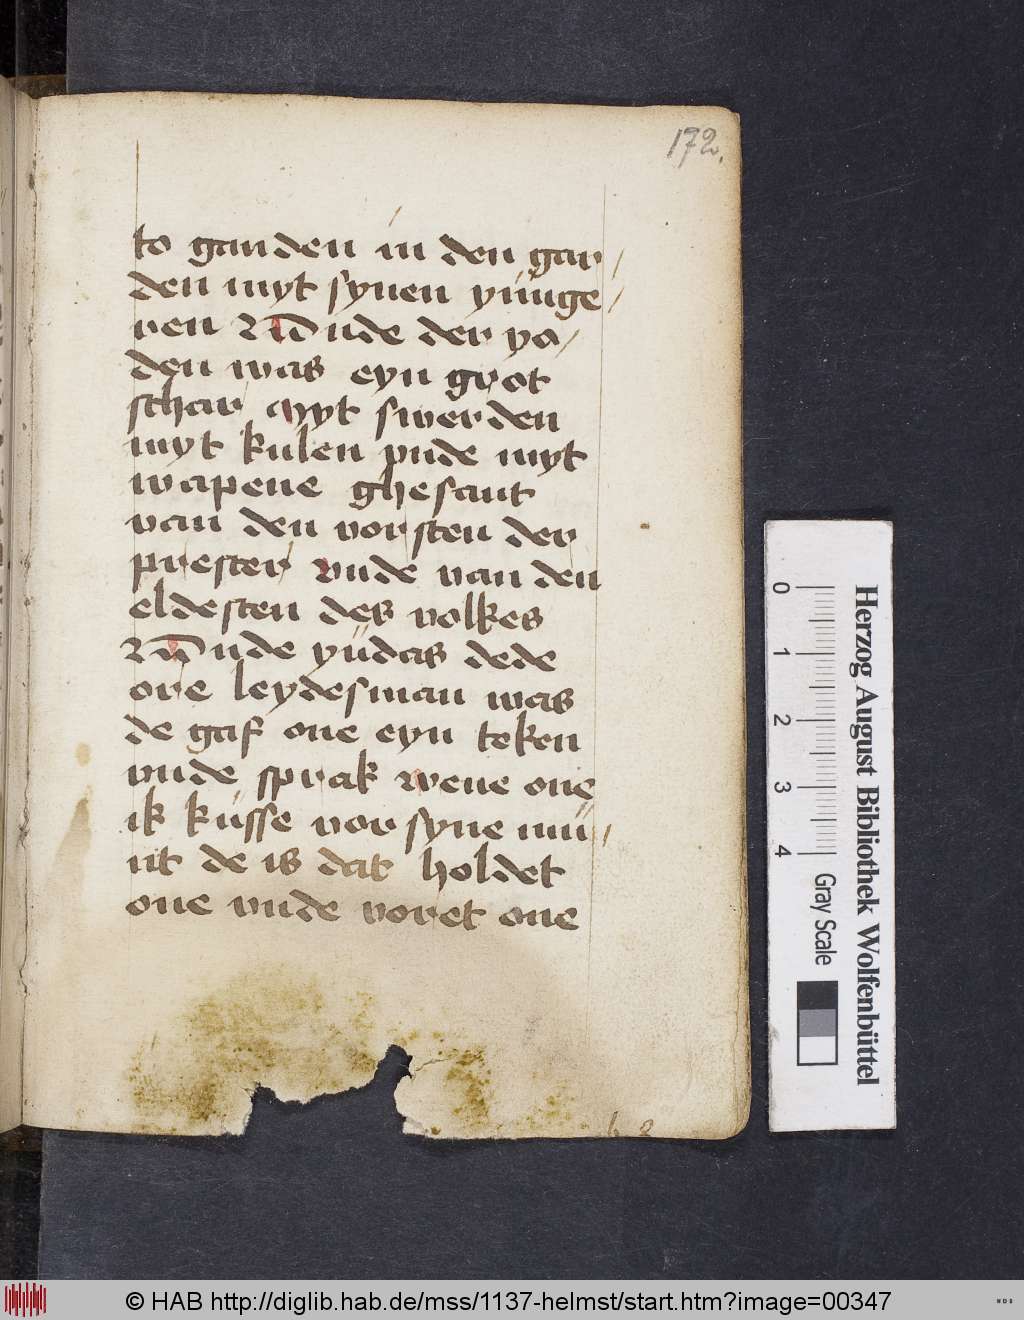 172.
to gan den in den gar/
den myt synen yunge/
ren Unde der yo/
den was eyn grot
schar Myt swerden
myt kulen vnde myt
wapene ghesant
van den vorsten der
prester vnde van den
eldesten des volkes
Unde yüdas dede
ore leydesman was
de gaf one eyn teken
vnde sprak wene one
ik küsse vor syne mü/
nt de is dat holdet
one vnde voret one
Herzog August Bibliothek Wolfenbüttel
0 1 2 3 4
Gray Scale
© HAB http://diglib.hab.de/mss/1137-helmst/start.htm?image=00347